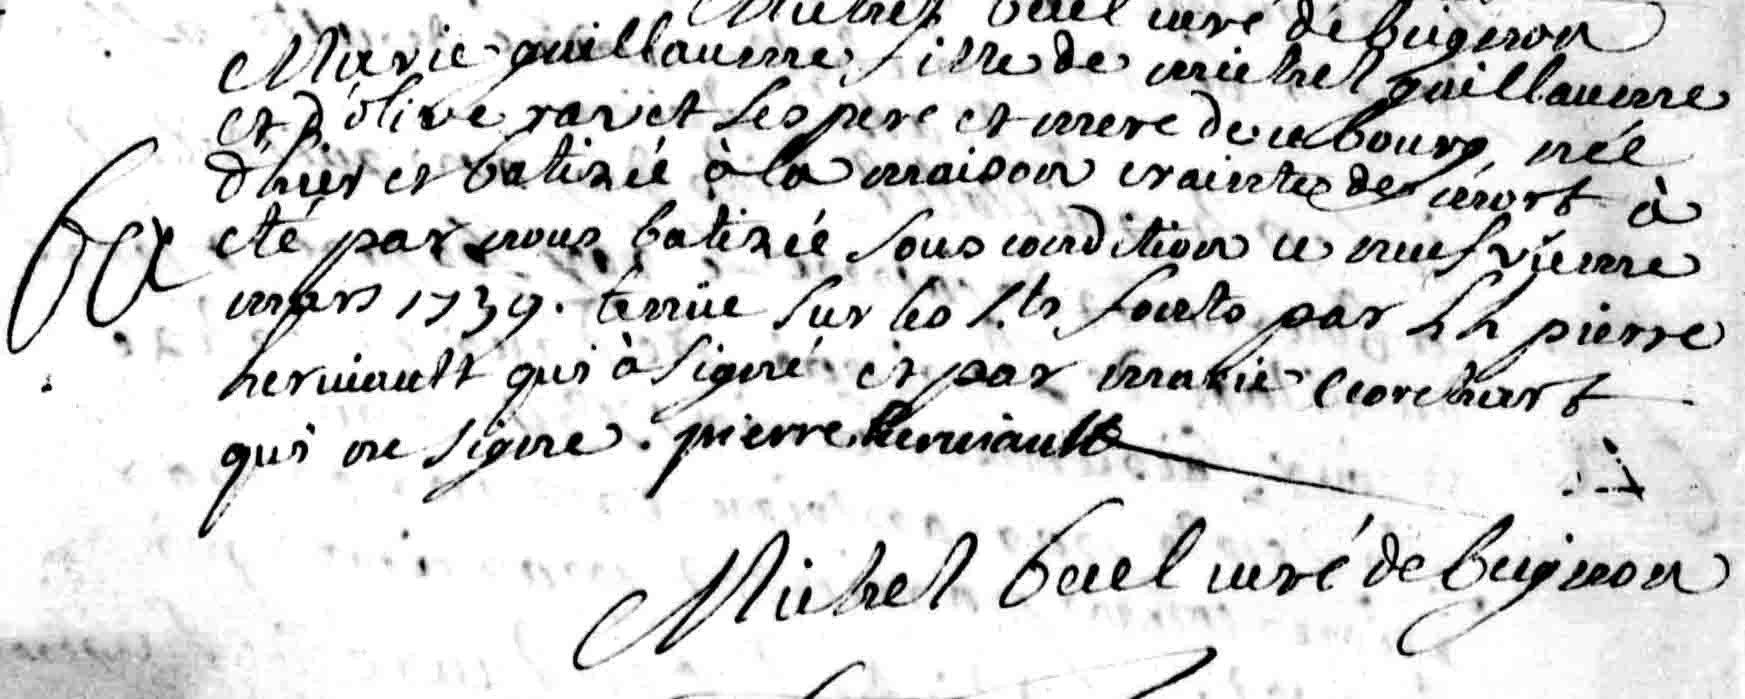 Michel buel curé de bugnon
Marie guillaume fille de michel guillaume
et d'olive ravet ses pere et mere de ce bourg, née
d'hier et batizée à la maison crainte de mort à
ba été par nous batizée sous condition ce neufvieme
mars 1739. tenüe sur les s.ts fonts par h h pierre
herviault qui à signé et par marie
qui ne signe. pierre herviault
Michel buel curé de bugnon